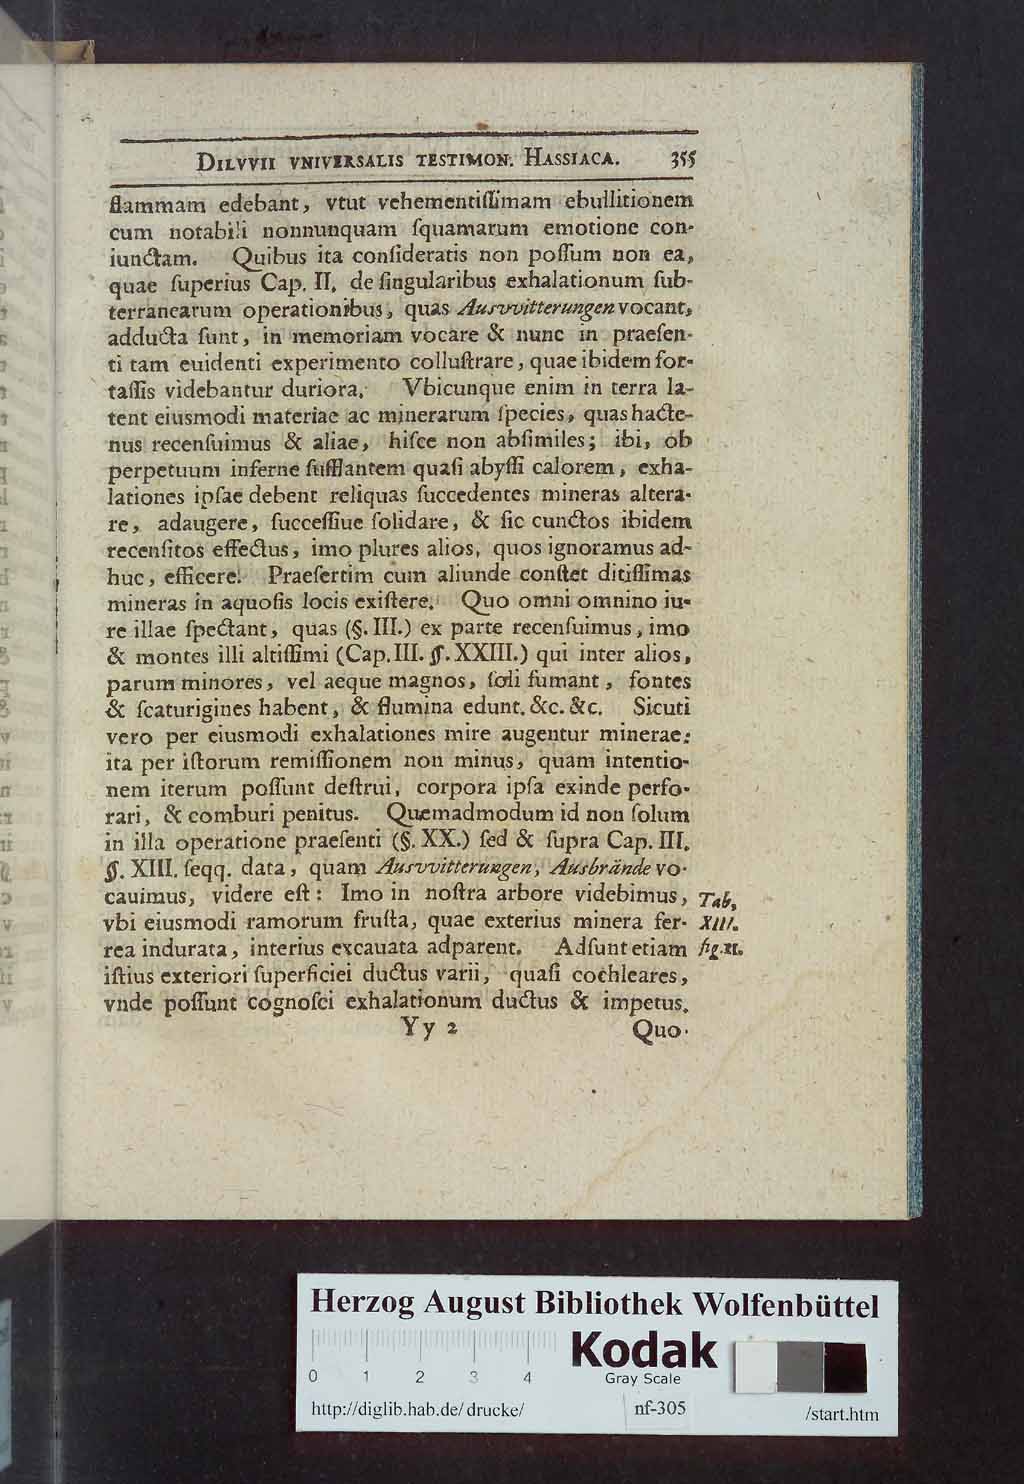 DILVVII VNIVERSALIS TESTIMON. HASSIACA. 355
flammam edebant, vtut vehementiſſimam ebullitionem
cum notabili nonnunquam ſquamarum emotione con-
iunctam. Quibus ita conſideratis non poſſum non ea,
quae ſuperius Cap. II. de ſingularibus exhalationum ſub-
terranearum operationibus, quas Ausvvitterungen vocant,
adducta ſunt, in memoriam vocare & nunc in praeſen-
ti tam euidenti experimento colluſtrare, quae ibidem for-
taſſis videbantur duriora. Vbicunque enim in terra la-
tent eiusmodi materiae ac minerarum ſpecies, quas hacte-
nus recenſuimus & aliae, hiſce non abſimiles; ibi, ob
perpetuum inferne ſufflantem quaſi abyſſi calorem, exha-
lationes ipſae debent reliquas ſuccedentes mineras altera-
re, adaugere, ſucceſſiue ſolidare, & ſic cunctos ibidem
recenſitos effectus, imo plures alios, quos ignoramus ad-
huc, efficere. Praeſertim cum aliunde conſtet ditiſſimas
mineras in aquoſis locis exiſtere. Quo omni omnino iu-
re illae ſpectant, quas (§. III.) ex parte recenſuimus, imo
& montes illi altiſſimi (Cap. III. §. XXIII.) qui inter alios,
parum minores, vel aeque magnos, ſoli fumant, fontes
& ſcaturigines habent, & flumina edunt. &c. &c. Sicuti
vero per eiusmodi exhalationes mire augentur minerae:
ita per iſtorum remiſſionem non minus, quam intentio-
nem iterum poſſunt deſtrui, corpora ipſa exinde perfo-
rari, & comburi penitus. Quemadmodum id non ſolum
in illa operatione praeſenti (§. XX.) ſed & ſupra Cap. III.
§. XIII. ſeqq. data, quam Ausvvitterungen, Ausbrände vo-
cauimus, videre eſt: Imo in noſtra arbore videbimus, Tab,
vbi eiusmodi ramorum fruſta, quae exterius minera fer- XIII.
rea indurata, interius excauata adparent. Adſunt etiam fig. II.
iſtius exteriori ſuperficiei ductus varii, quaſi cochleares,
vnde poſſunt cognoſci exhalationum ductus & impetus.
Yy 2 Quo-
Herzog August Bibliothek Wolfenbüttel
Kodak
Gray Scale
0 1 2 3 4
http://diglib.hab.de/drucke/ nf-305 /start.htm